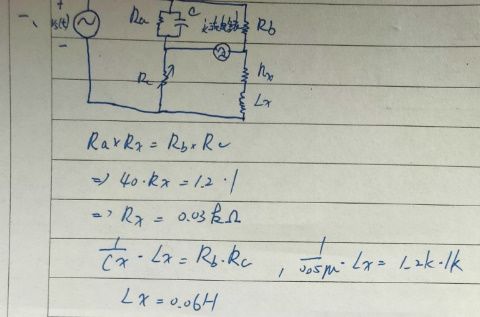 一、
+
Vs(t)
-
Ra
C
Rb
Rc
Rx
Lx
Ra×Rx = Rb×Rc
⇒ 40·Rx = 1.2·1
⇒ Rx = 0.03kΩ
1/Cx · Lx = Rb·Rc , 1/0.05μ · Lx = 1.2k·1k
Lx = 0.06H